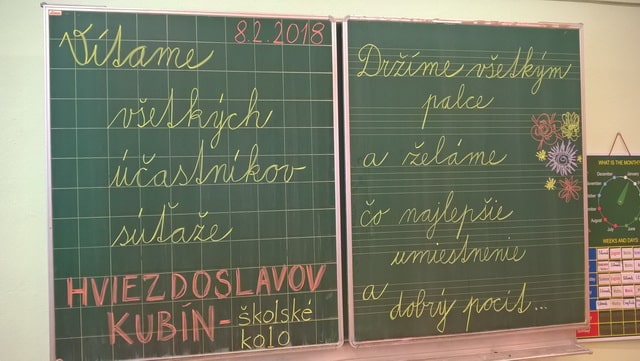 8.2.2018
Vítame
všetkých
účastníkov
súťaže
HVIEZDOSLAVOV
KUBÍN - školské
kolo
Držíme všetkým
palce
a želáme
čo najlepšie
umiestnenie
a
dobrý pocit...
WHAT IS THE MONTH?
WEEKS AND DAYS